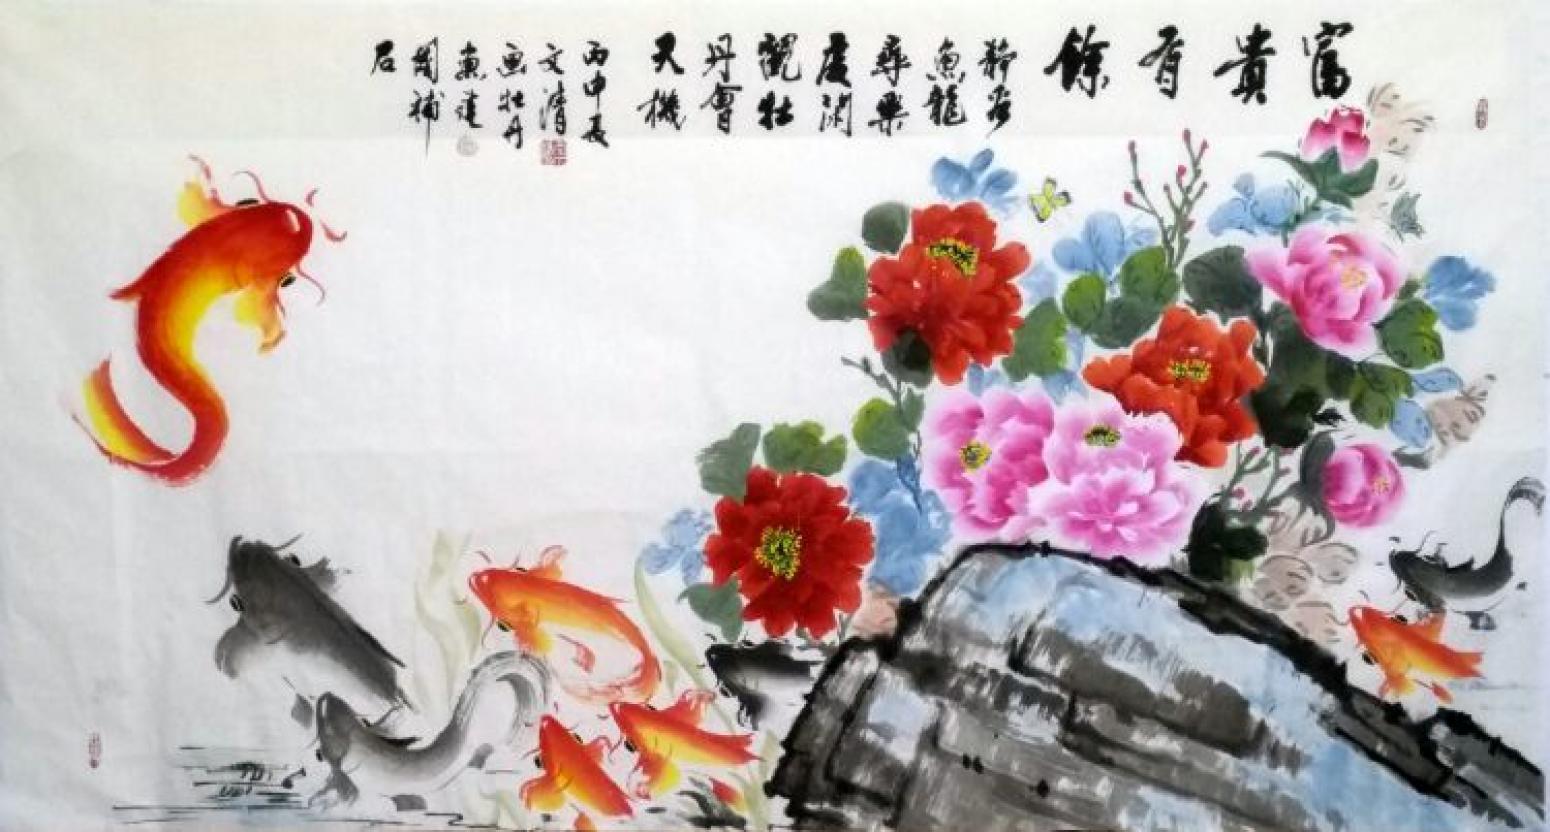 富貴有餘
静看
魚龍
尋樂
度閑
觀牡
丹會
天機
丙申夏
文清
画牡丹
魚建
補
石